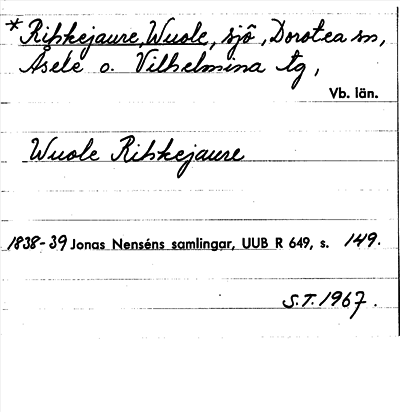 *Ripkejaure, Wuole, sjö, Dorotea sn,
Åsele o. Vilhelmina tg,
Vb. län.
Wuole Ripkejaure
1838-39 Jonas Nenséns samlingar, UUB R 649, s. 149.
S.T. 1967.